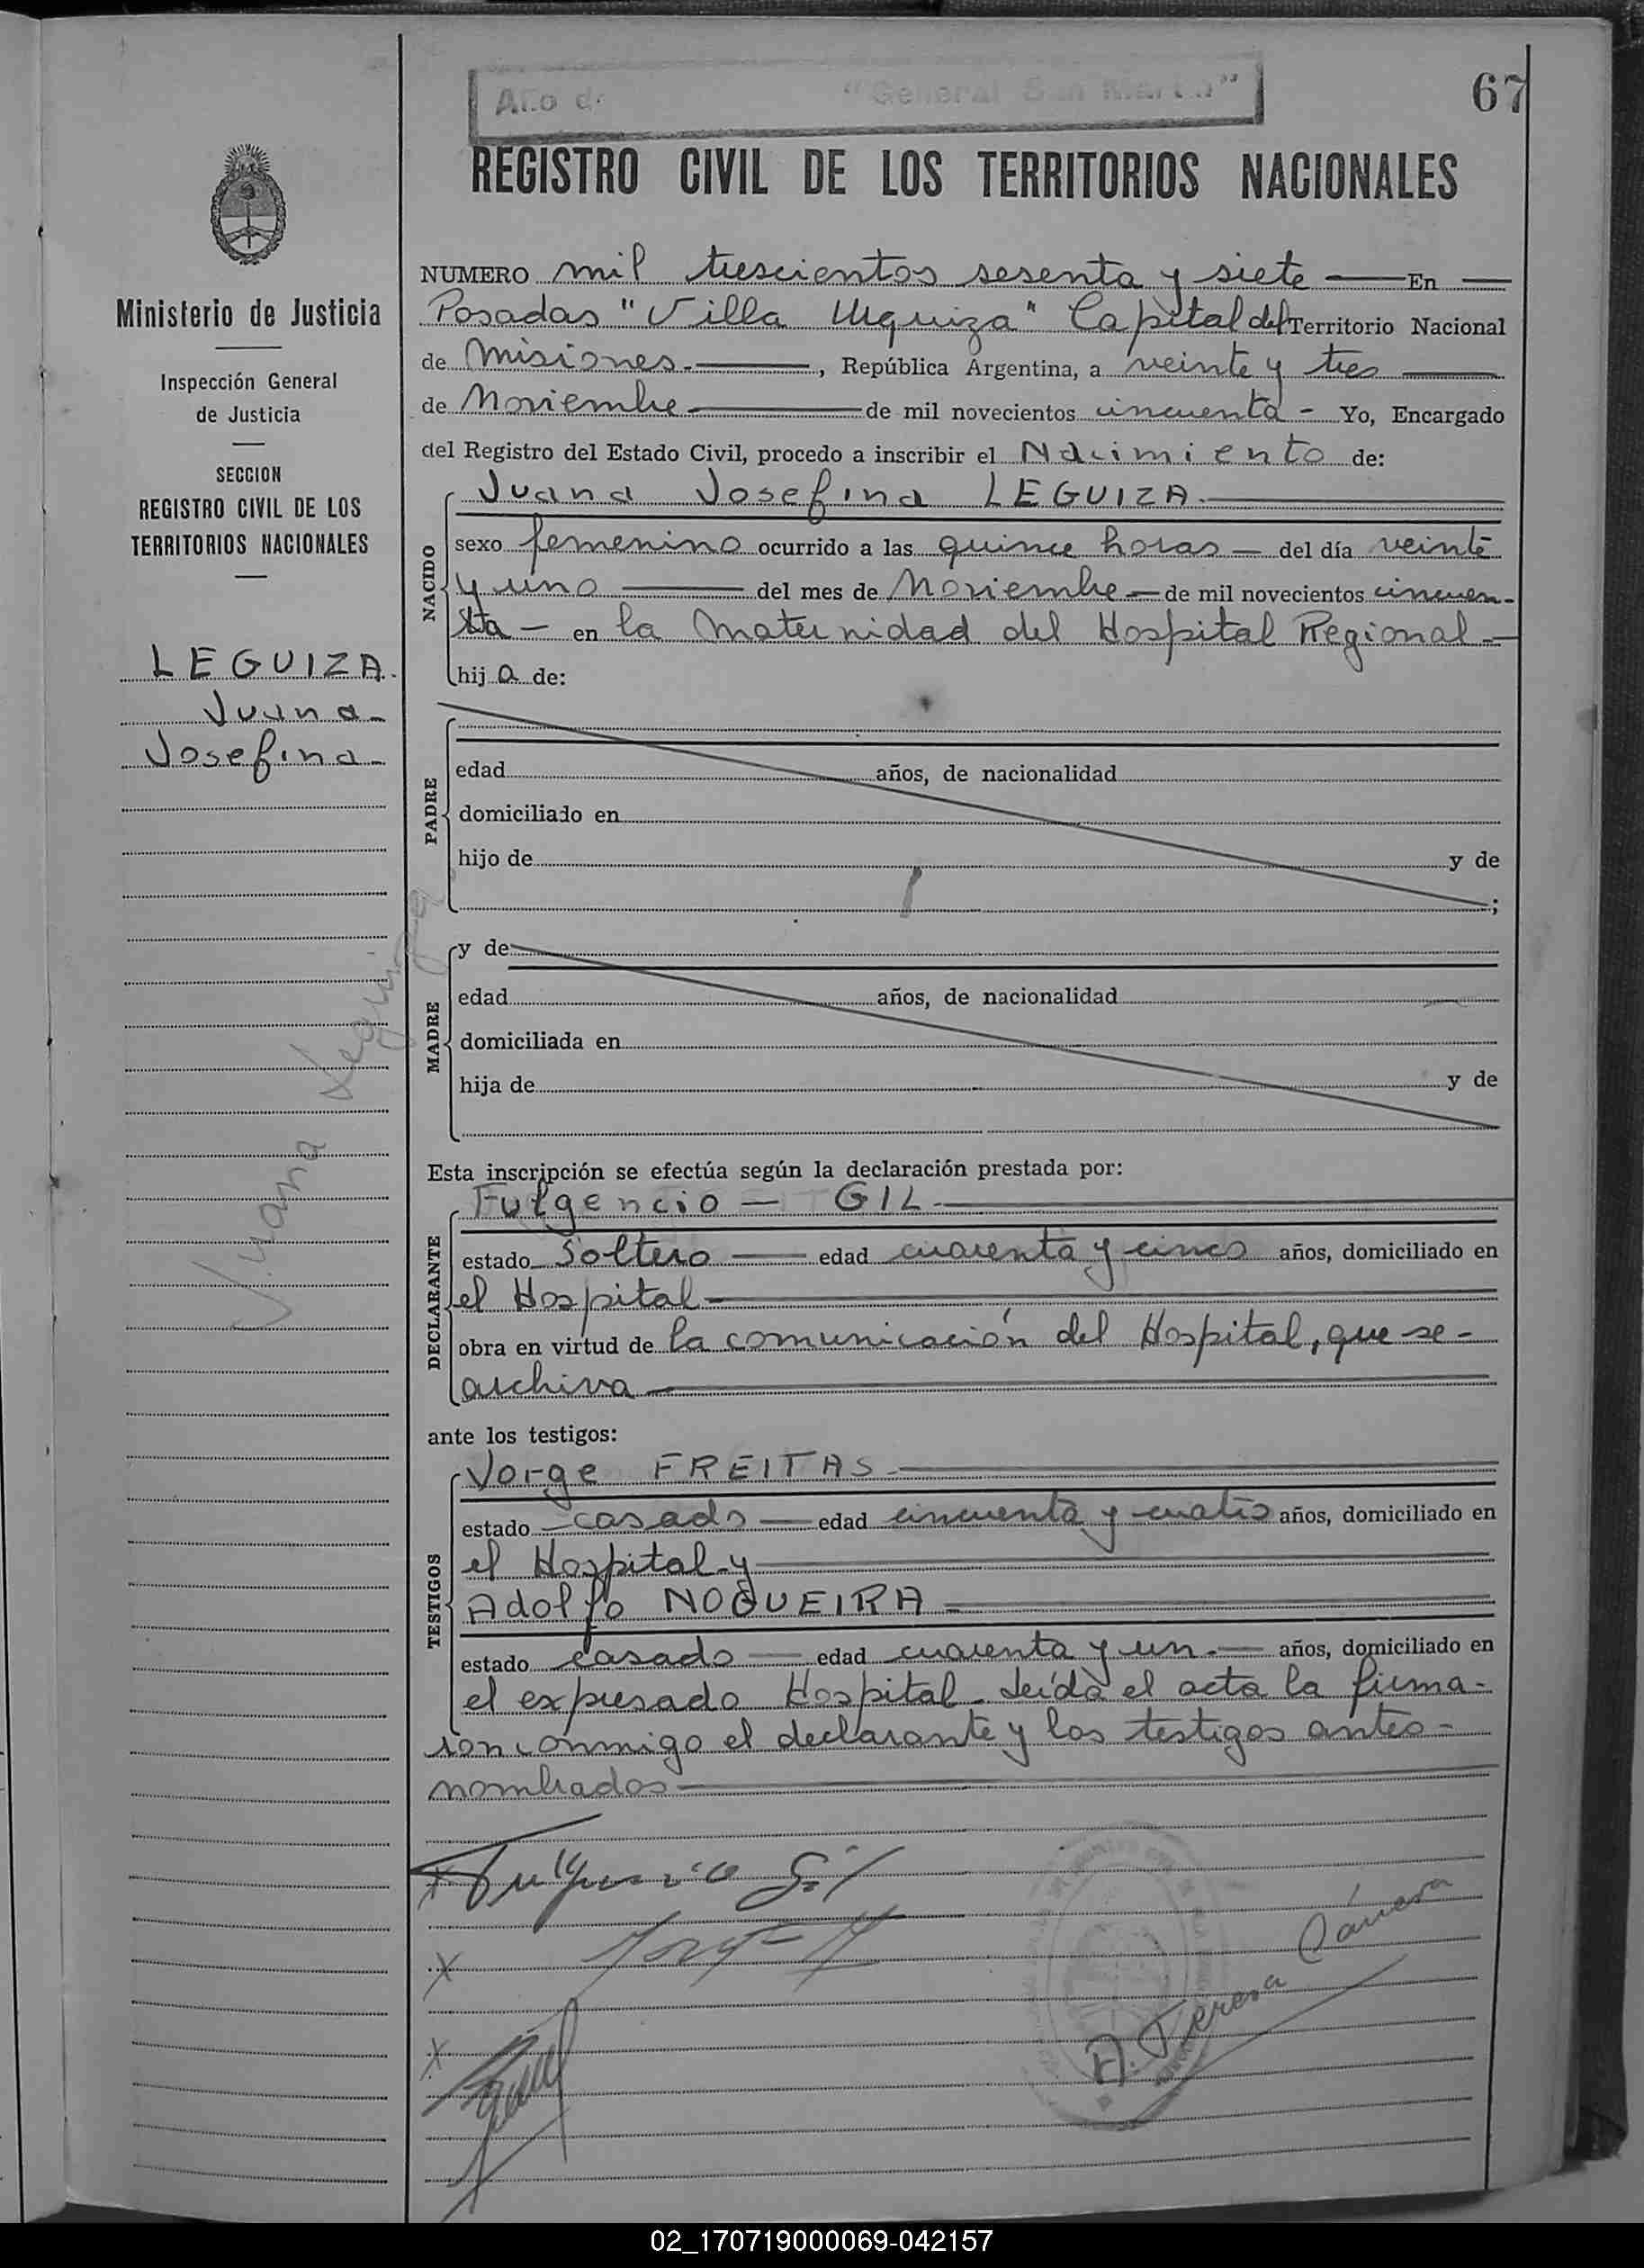 67
REGISTRO CIVIL DE LOS TERRITORIOS NACIONALES
Ministerio de Justicia
Inspección General
de Justicia
SECCION
REGISTRO CIVIL DE LOS
TERRITORIOS NACIONALES
LEGUIZA
Juana
Josefina
Juana Leguiza
Año de "General San Martín"
NUMERO mil trescientos sesenta y siete En
Posadas "Villa Urquiza" Capital del Territorio Nacional
de Misiones.-, República Argentina, a veinte y tres
de Noviembre de mil novecientos cincuenta - Yo, Encargado
del Registro del Estado Civil, procedo a inscribir el Nacimiento de:
NACIDO
Juana Josefina LEGUIZA.
sexo femenino ocurrido a las quince horas - del día veinte
y uno del mes de Noviembre - de mil novecientos cincuen-
ta - en la Maternidad del Hospital Regional -
hij a de:
PADRE
edad años, de nacionalidad
domiciliado en
hijo de y de
;
MADRE
y de
edad años, de nacionalidad
domiciliada en
hija de y de
Esta inscripción se efectúa según la declaración prestada por:
DECLARANTE
Fulgencio - GIL
estado Soltero edad cuarenta y cinco años, domiciliado en
el Hospital
obra en virtud de la comunicación del Hospital, que se -
archiva
ante los testigos:
TESTIGOS
Jorge FREITAS
estado casado edad cincuenta y cuatro años, domiciliado en
el Hospital y
Adolfo NOGUEIRA
estado casado edad cuarenta y un.- años, domiciliado en
el expresado Hospital. Leída el acta la firma-
ron conmigo el declarante y los testigos antes -
nombrados
Fulgencio Gil
A. Teresa Cáneva
02_170719000069-042157